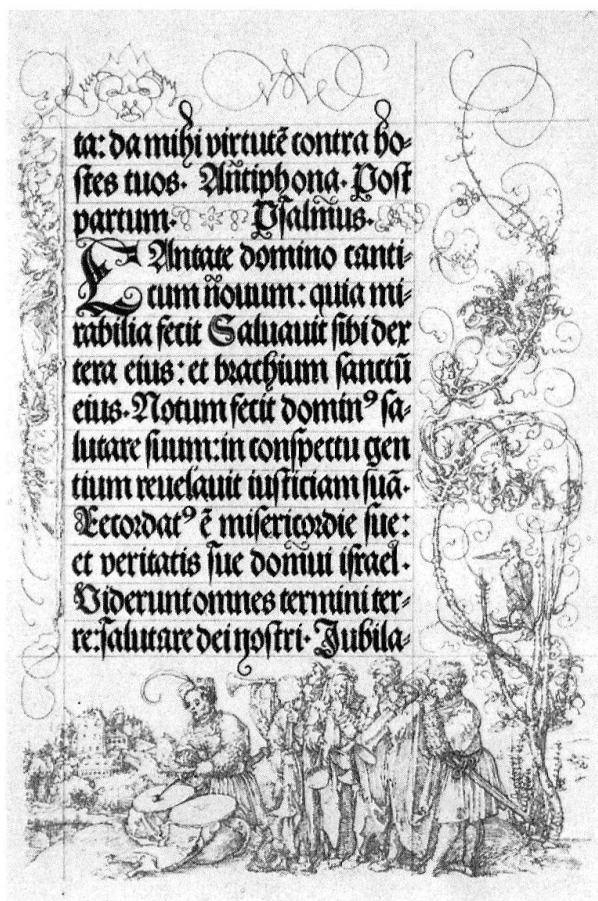 ta: da mihi virtutē contra ho-
stes tuos. Añtiphona. Post
partum. Psalm̃us.
CAntate domino canti-
cum ñouum: quia mi-
rabilia fecit Saluauit sibi dex
tera eius: et brachium sanctū
eius. Notum fecit dominꝰ sa-
lutare suum: in conspectu gen
tium reuelauit iusticiam suā.
Recordatꝰ ē misericordie sue:
et veritatis sue dom̃ui israel.
Viderunt omnes termini ter-
re: salutare dei nostri. Jubila-